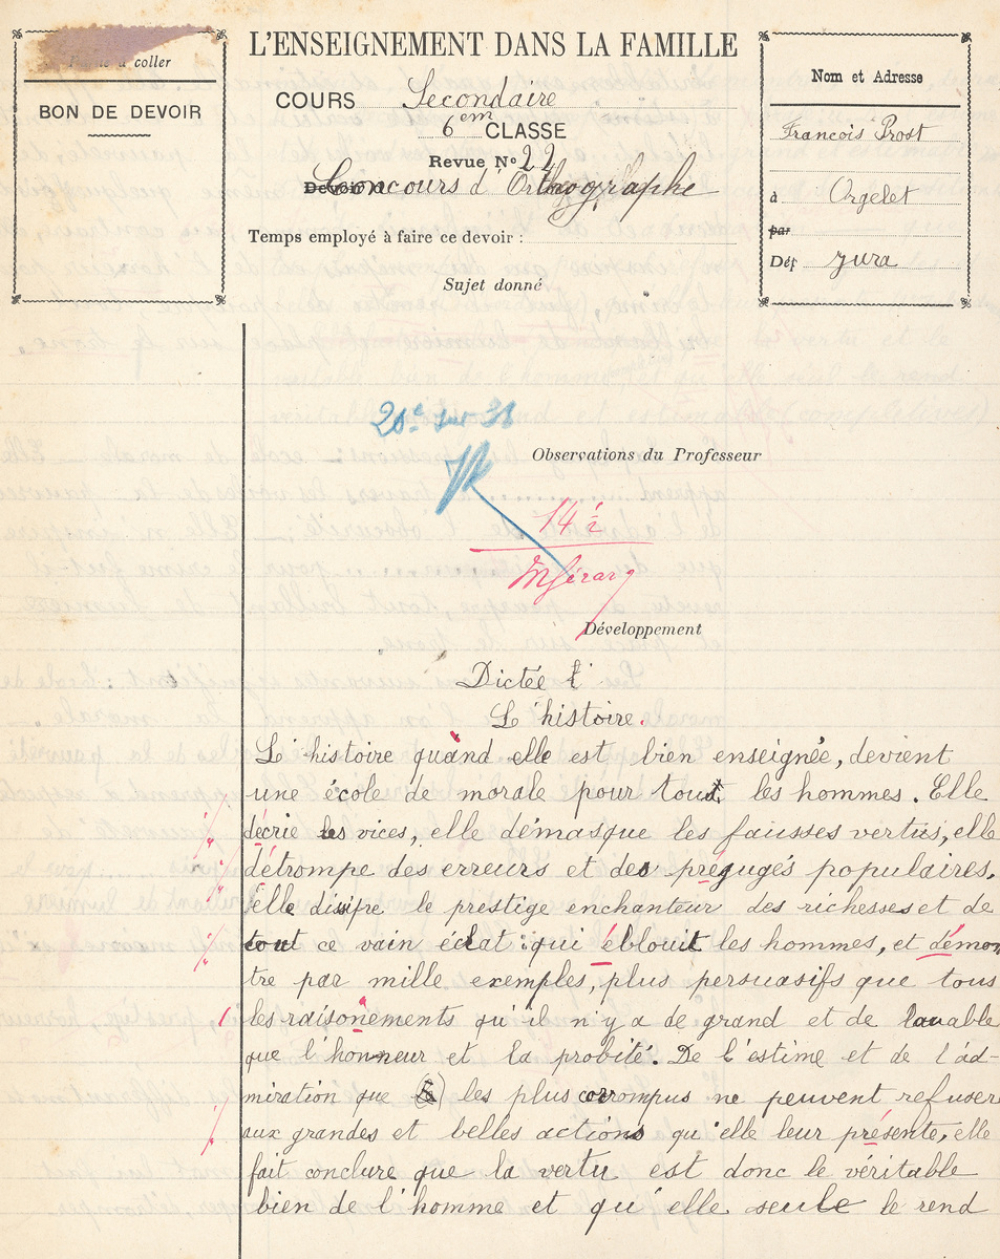 à coller
BON DE DEVOIR
L'ENSEIGNEMENT DANS LA FAMILLE
COURS Secondaire
6em CLASSE
Revue No 22
Devoir Concours d'Orthographe
Temps employé à faire ce devoir :
Sujet donné
Nom et Adresse
Francois Prost
à Orgelet
par
Dép Jura
20e sur 38
Observations du Professeur
14 1/2
Développement
Dictée
L'histoire.
L'histoire quand elle est bien enseignée, devient
une école de morale pour tout les hommes. Elle
décrie les vices, elle démasque les fausses vertus, elle
détrompe des erreurs et des prégugés populaires.
elle dissipe le prestige enchanteur des richesses et de
tout ce vain éclat qui éblouit les hommes, et démon
tre par mille exemples, plus persuasifs que tous
les raisonements qu'il n'y a de grand et de louable
que l'honneur et la probité. De l'estime et de l'ad-
miration que les plus corrompus ne peuvent refuser
aux grandes et belles actions qu'elle leur présente, elle
fait conclure que la vertu est donc le véritable
bien de l'homme et qu'elle seule le rend